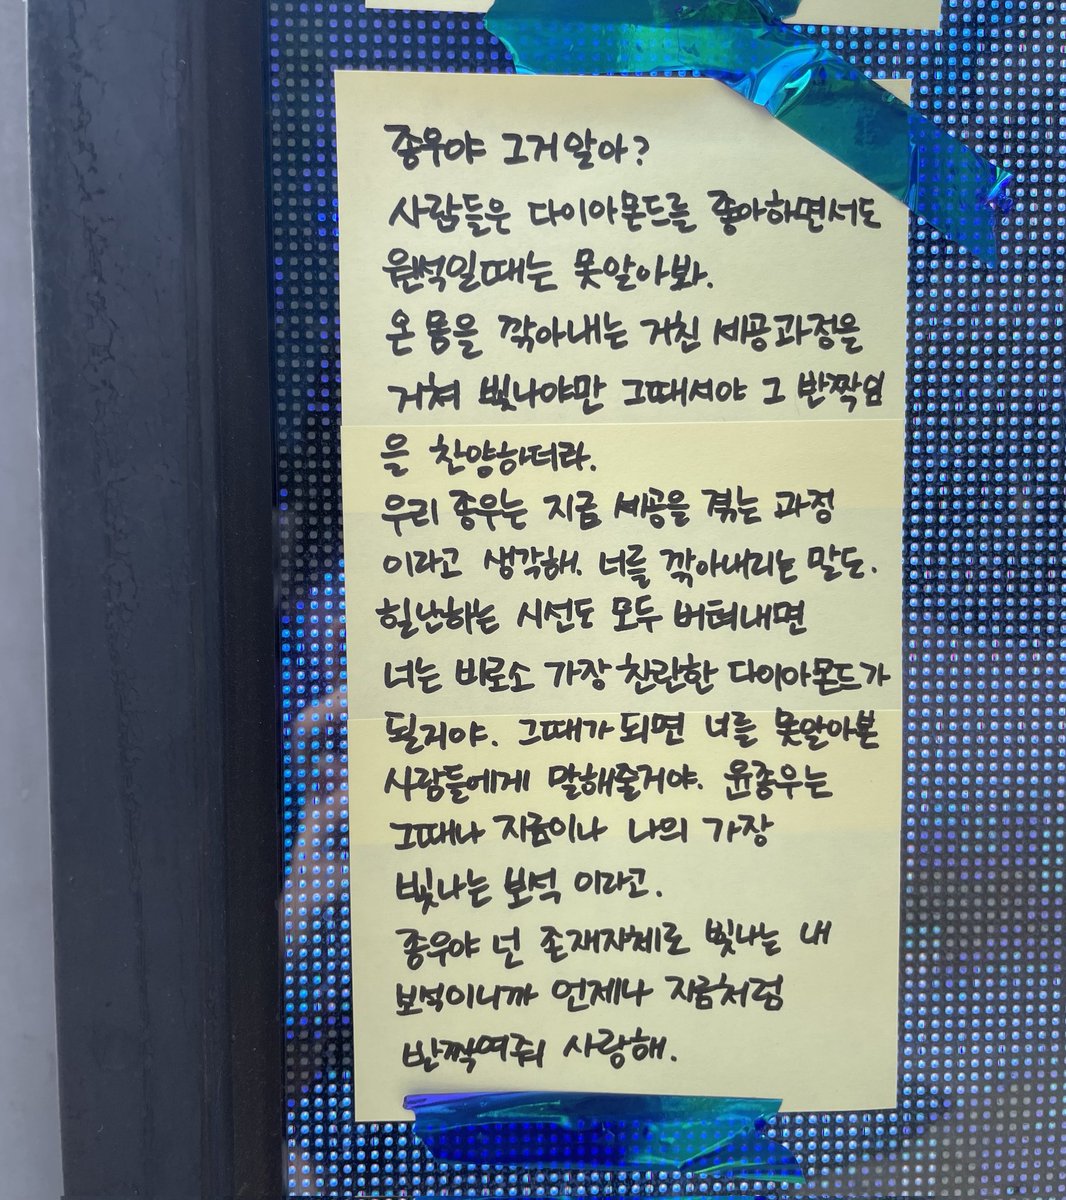 종우야 그거 알아?
사람들은 다이아몬드를 좋아하면서도
원석일때는 못알아봐.
온 몸을 깎아내는 거친 세공과정을
거쳐 빛나야만 그때서야 그 반짝임
을 찬양하더라.
우리 종우는 지금 세공을 겪는 과정
이라고 생각해. 너를 깎아내리는 말도.
힐난하는 시선도 모두 버텨내면
너는 비로소 가장 찬란한 다이아몬드가
될거야. 그때가 되면 너를 못알아본
사람들에게 말해줄거야. 윤종우는
그때나 지금이나 나의 가장
빛나는 보석 이라고.
종우야 넌 존재자체로 빛나는 내
보석이니까 언제나 지금처럼
반짝여줘 사랑해.